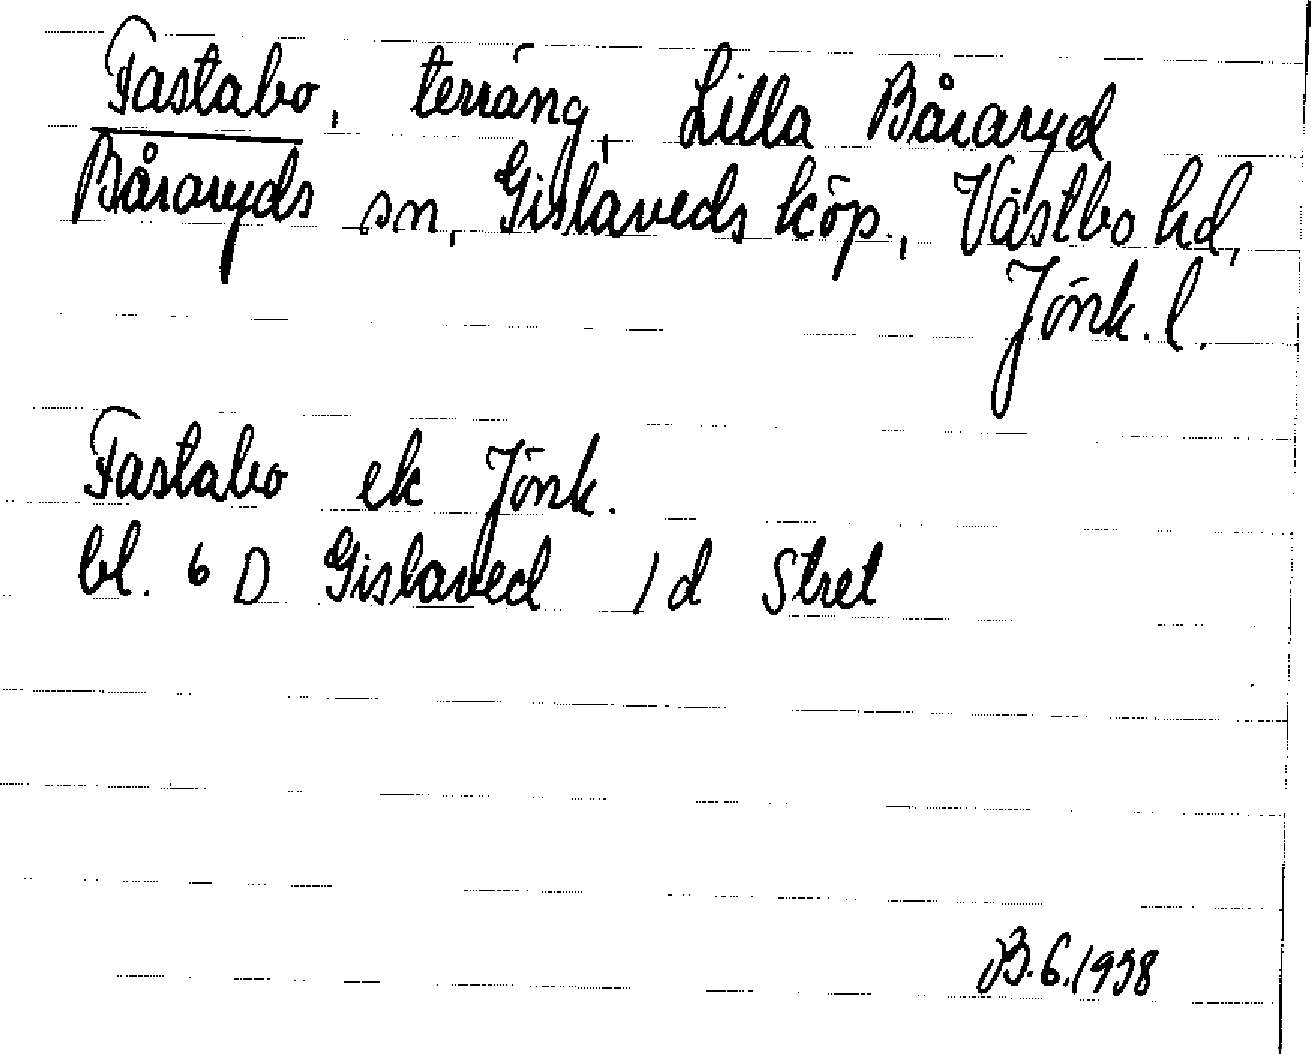 Fastabo, terräng, Lilla Båraryd
Båraryds sn, Gislaveds köp., Västbo hd,
Jönk. l.
Fastabo ek Jönk.
bl. 6 D Gislaved 1 d Stret
B. 6. 1958